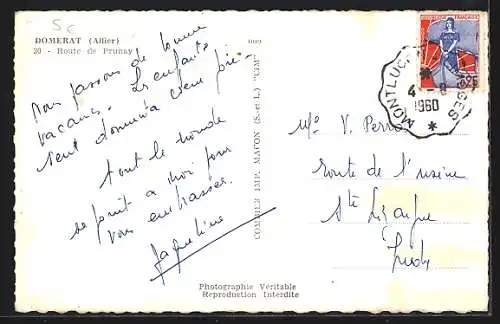 5c
DOMERAT (Allier)
20 - Route de Prunay
Nous passons de bonnes
vacances. Les enfants
tout le monde
se joint à moi pour
vous embrasser.
Jaqueline
COMBIER IMP. MACON (S.-et-L.) "CIM"
Photographie Véritable
Reproduction Interdite
REPUBLIQUE FRANÇAISE
0,25
MONTLUC
4 - 8
1960
V. Perrin
Route de l'usine
Ste